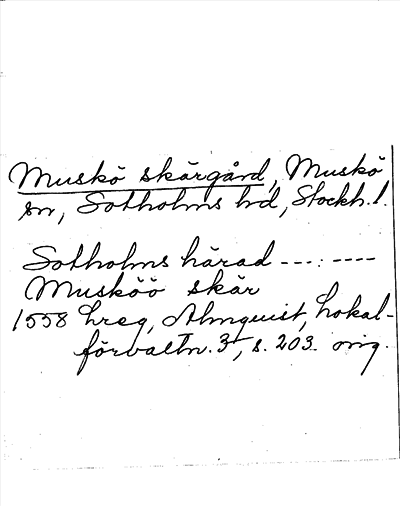 Muskö skärgård, Muskö
sn, Sotholms hd, Stockh. l.
Sotholms härad ---:----
Musköö skär
1558 hreg, Almquist, Lokal-
förvaltn. 3, s. 203. orig.